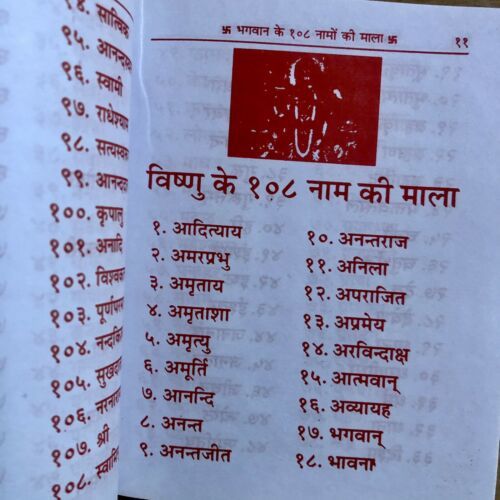 ९४. सात्विक
९५.
९६. स्वामी
९७. राधेश्याम
९८.
९९.
१००. कृपालु
१०१. अनादि
१०२.
१०३.
१०४.
१०५.
१०६.
१०७. श्री
१०८.
卐 भगवान के १०८ नामों की माला 卐
११
विष्णु के १०८ नाम की माला
१. आदित्याय
२. अमरप्रभु
३. अमृताय
४. अमृताशा
५. अमृत्यु
६. अमूर्ति
७. आनन्दि
८. अनन्त
९. अनन्तजीत
१०. अनन्तराज
११. अनिला
१२. अपराजित
१३. अप्रमेय
१४. अरविन्दाक्ष
१५. आत्मवान्
१६. अव्यायह
१७. भगवान्
१८. भावना